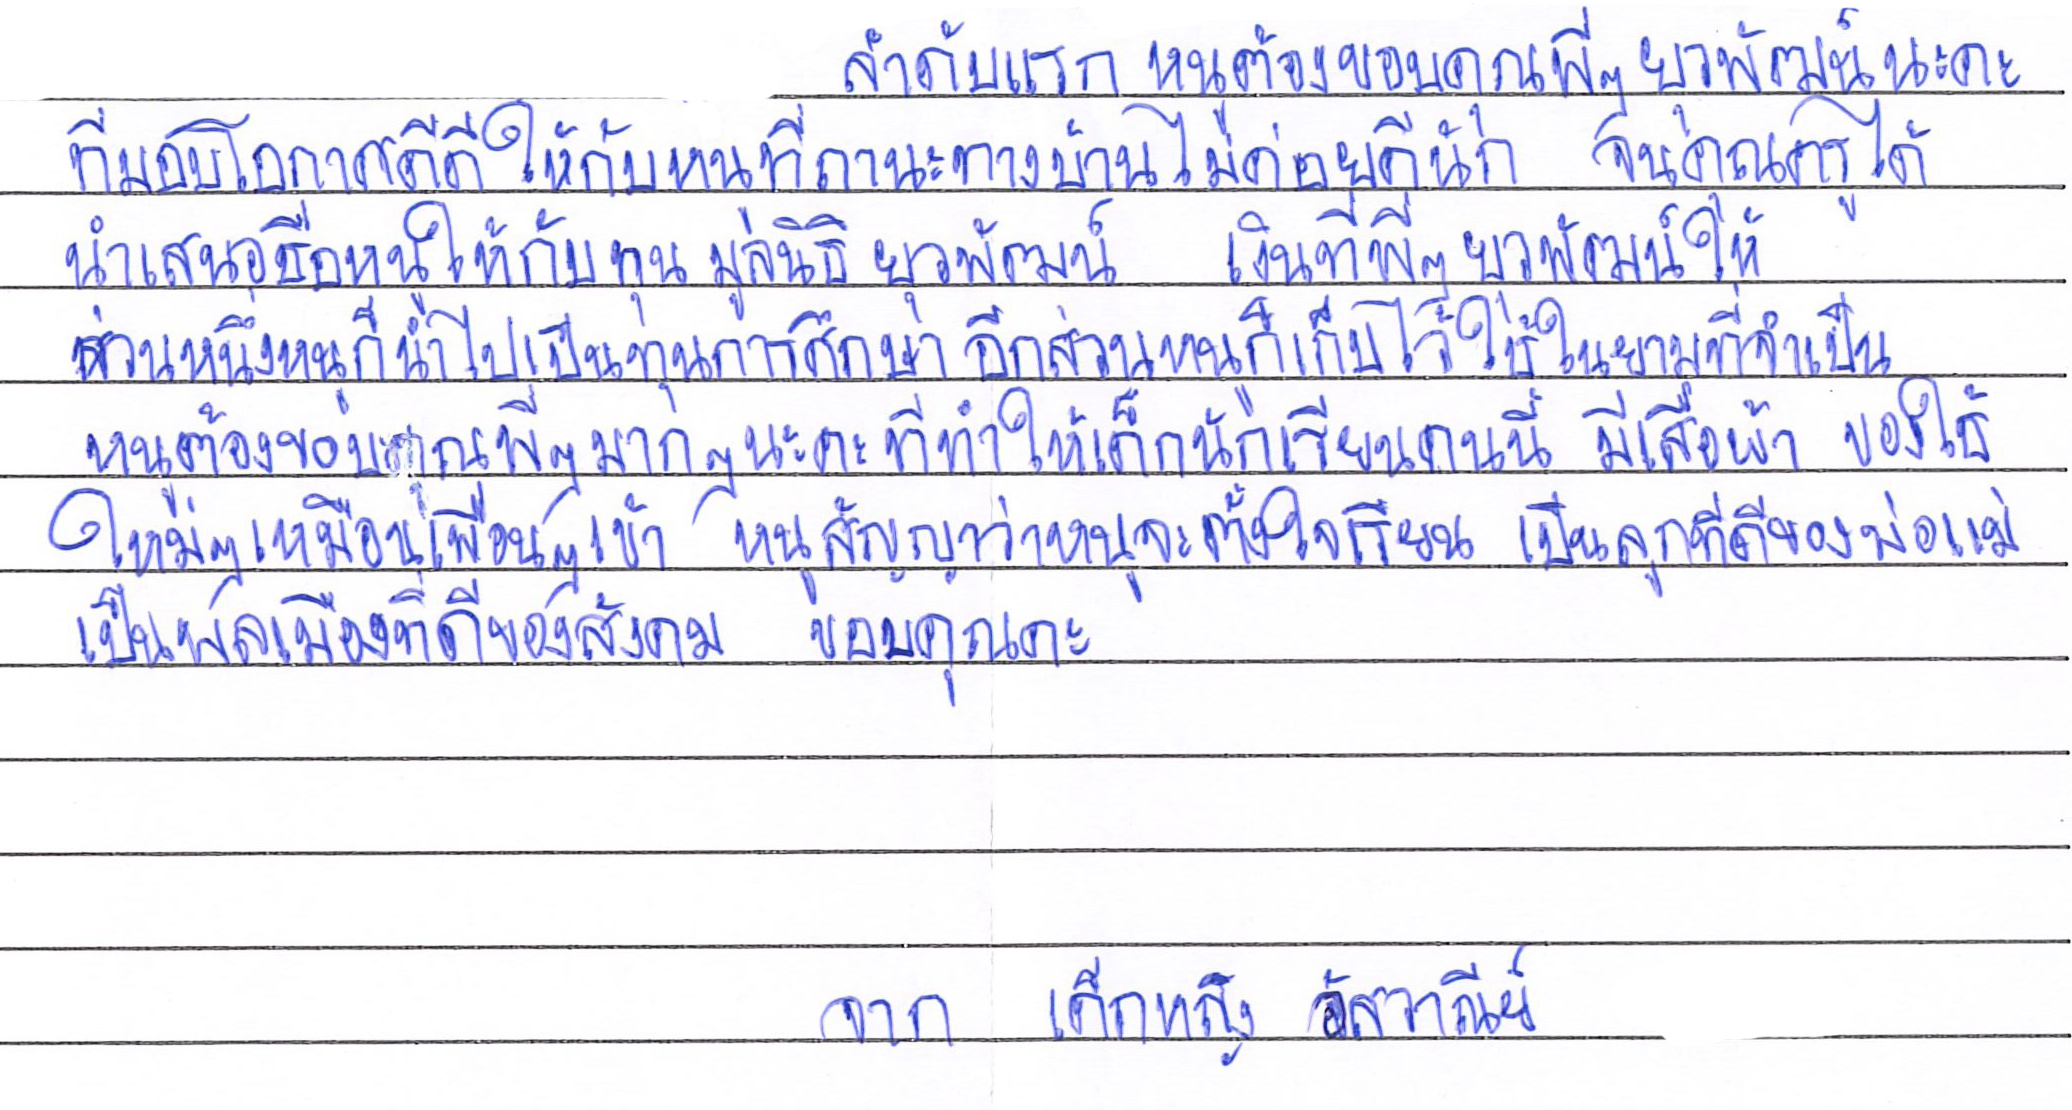 ลำดับแรก หนูต้องขอบคุณพี่ๆ ยุวพัฒน์ นะคะ
ที่มอบโอกาสดีดี ให้กับหนูที่ถานะทางบ้านไม่ค่อยดีนัก จนคุณครูได้
นำเสนอชื่อหนูให้กับทุน มูลนิธิ ยุวพัฒน์ เงินที่พี่ๆ ยุวพัฒน์ให้
ส่วนหนึ่งหนูก็นำไปเป็นทุนการศึกษา อีกส่วนหนูก็เก็บไว้ใช้ในยามที่จำเป็น
หนูต้องขอบคุณพี่ๆมากๆนะคะที่ทำให้เด็กนักเรียนคนนี้ มีเสื้อผ้า ของใช้
ใหม่ๆเหมือนเพื่อนๆเข้า หนูสัญญาว่าหนูจะตั้งใจเรียน เป็นลูกที่ดีของพ่อแม่
เป็นพลเมืองที่ดีของสังคม ขอบคุณคะ
จาก เด็กหญิง อัสวาณีย์